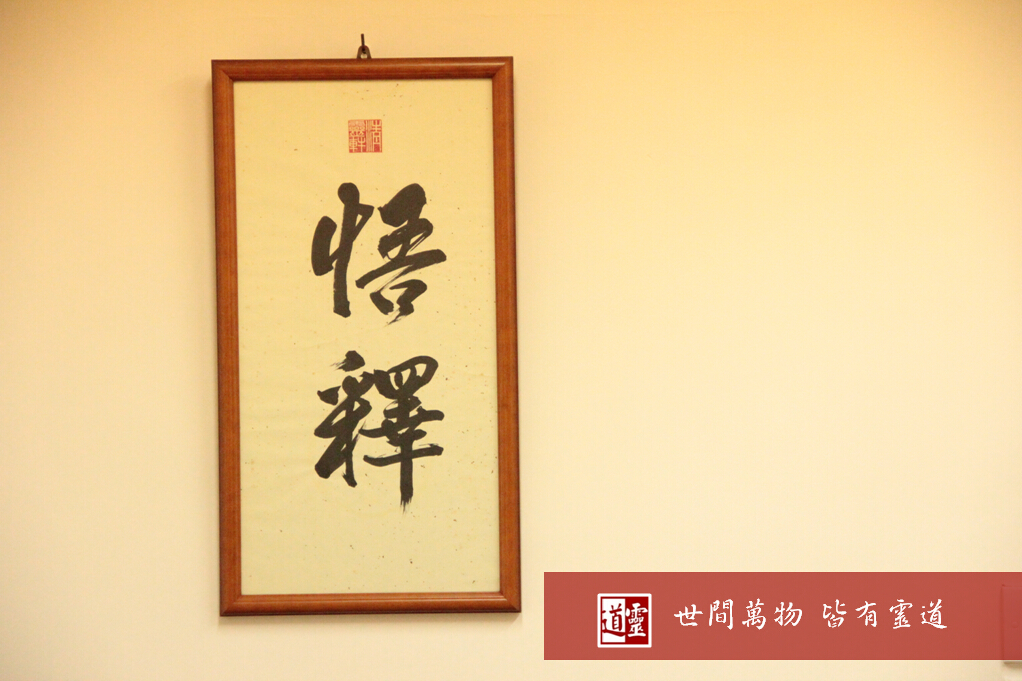 悟釋
靈道
世間萬物 皆有靈道